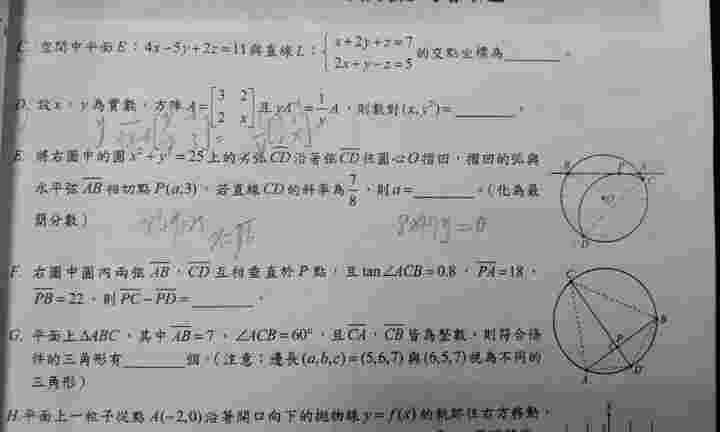 C. 空間中平面E：4x-5y+2z=11與直線L：{x+2y+z=7 2x+y-z=5 的交點坐標為______。
D. 設x，y為實數，方陣A=[3 2 2 x]且yA⁻¹=1/y A，則數對(x,y²)=______。
E. 將右圖中的圓x²+y²=25上的劣弧CD沿著弦CD往圓心O摺回，摺回的弧與
水平弦AB相切點P(a,3)，若直線CD的斜率為7/8，則a=______。(化為最
簡分數)
F. 右圖中圓內兩弦AB，CD互相垂直於P點，且tan∠ACB=0.8，PA=18，
PB=22，則PC-PD=______。
G. 平面上ΔABC，其中AB=7，∠ACB=60°，且CA，CB皆為整數，則符合條
件的三角形有______個。(注意：邊長(a,b,c)=(5,6,7)與(6,5,7)視為不同的
三角形)
H. 平面上一粒子從點A(-2,0)沿著開口向下的拋物線y=f(x)的軌跡往右方移動，